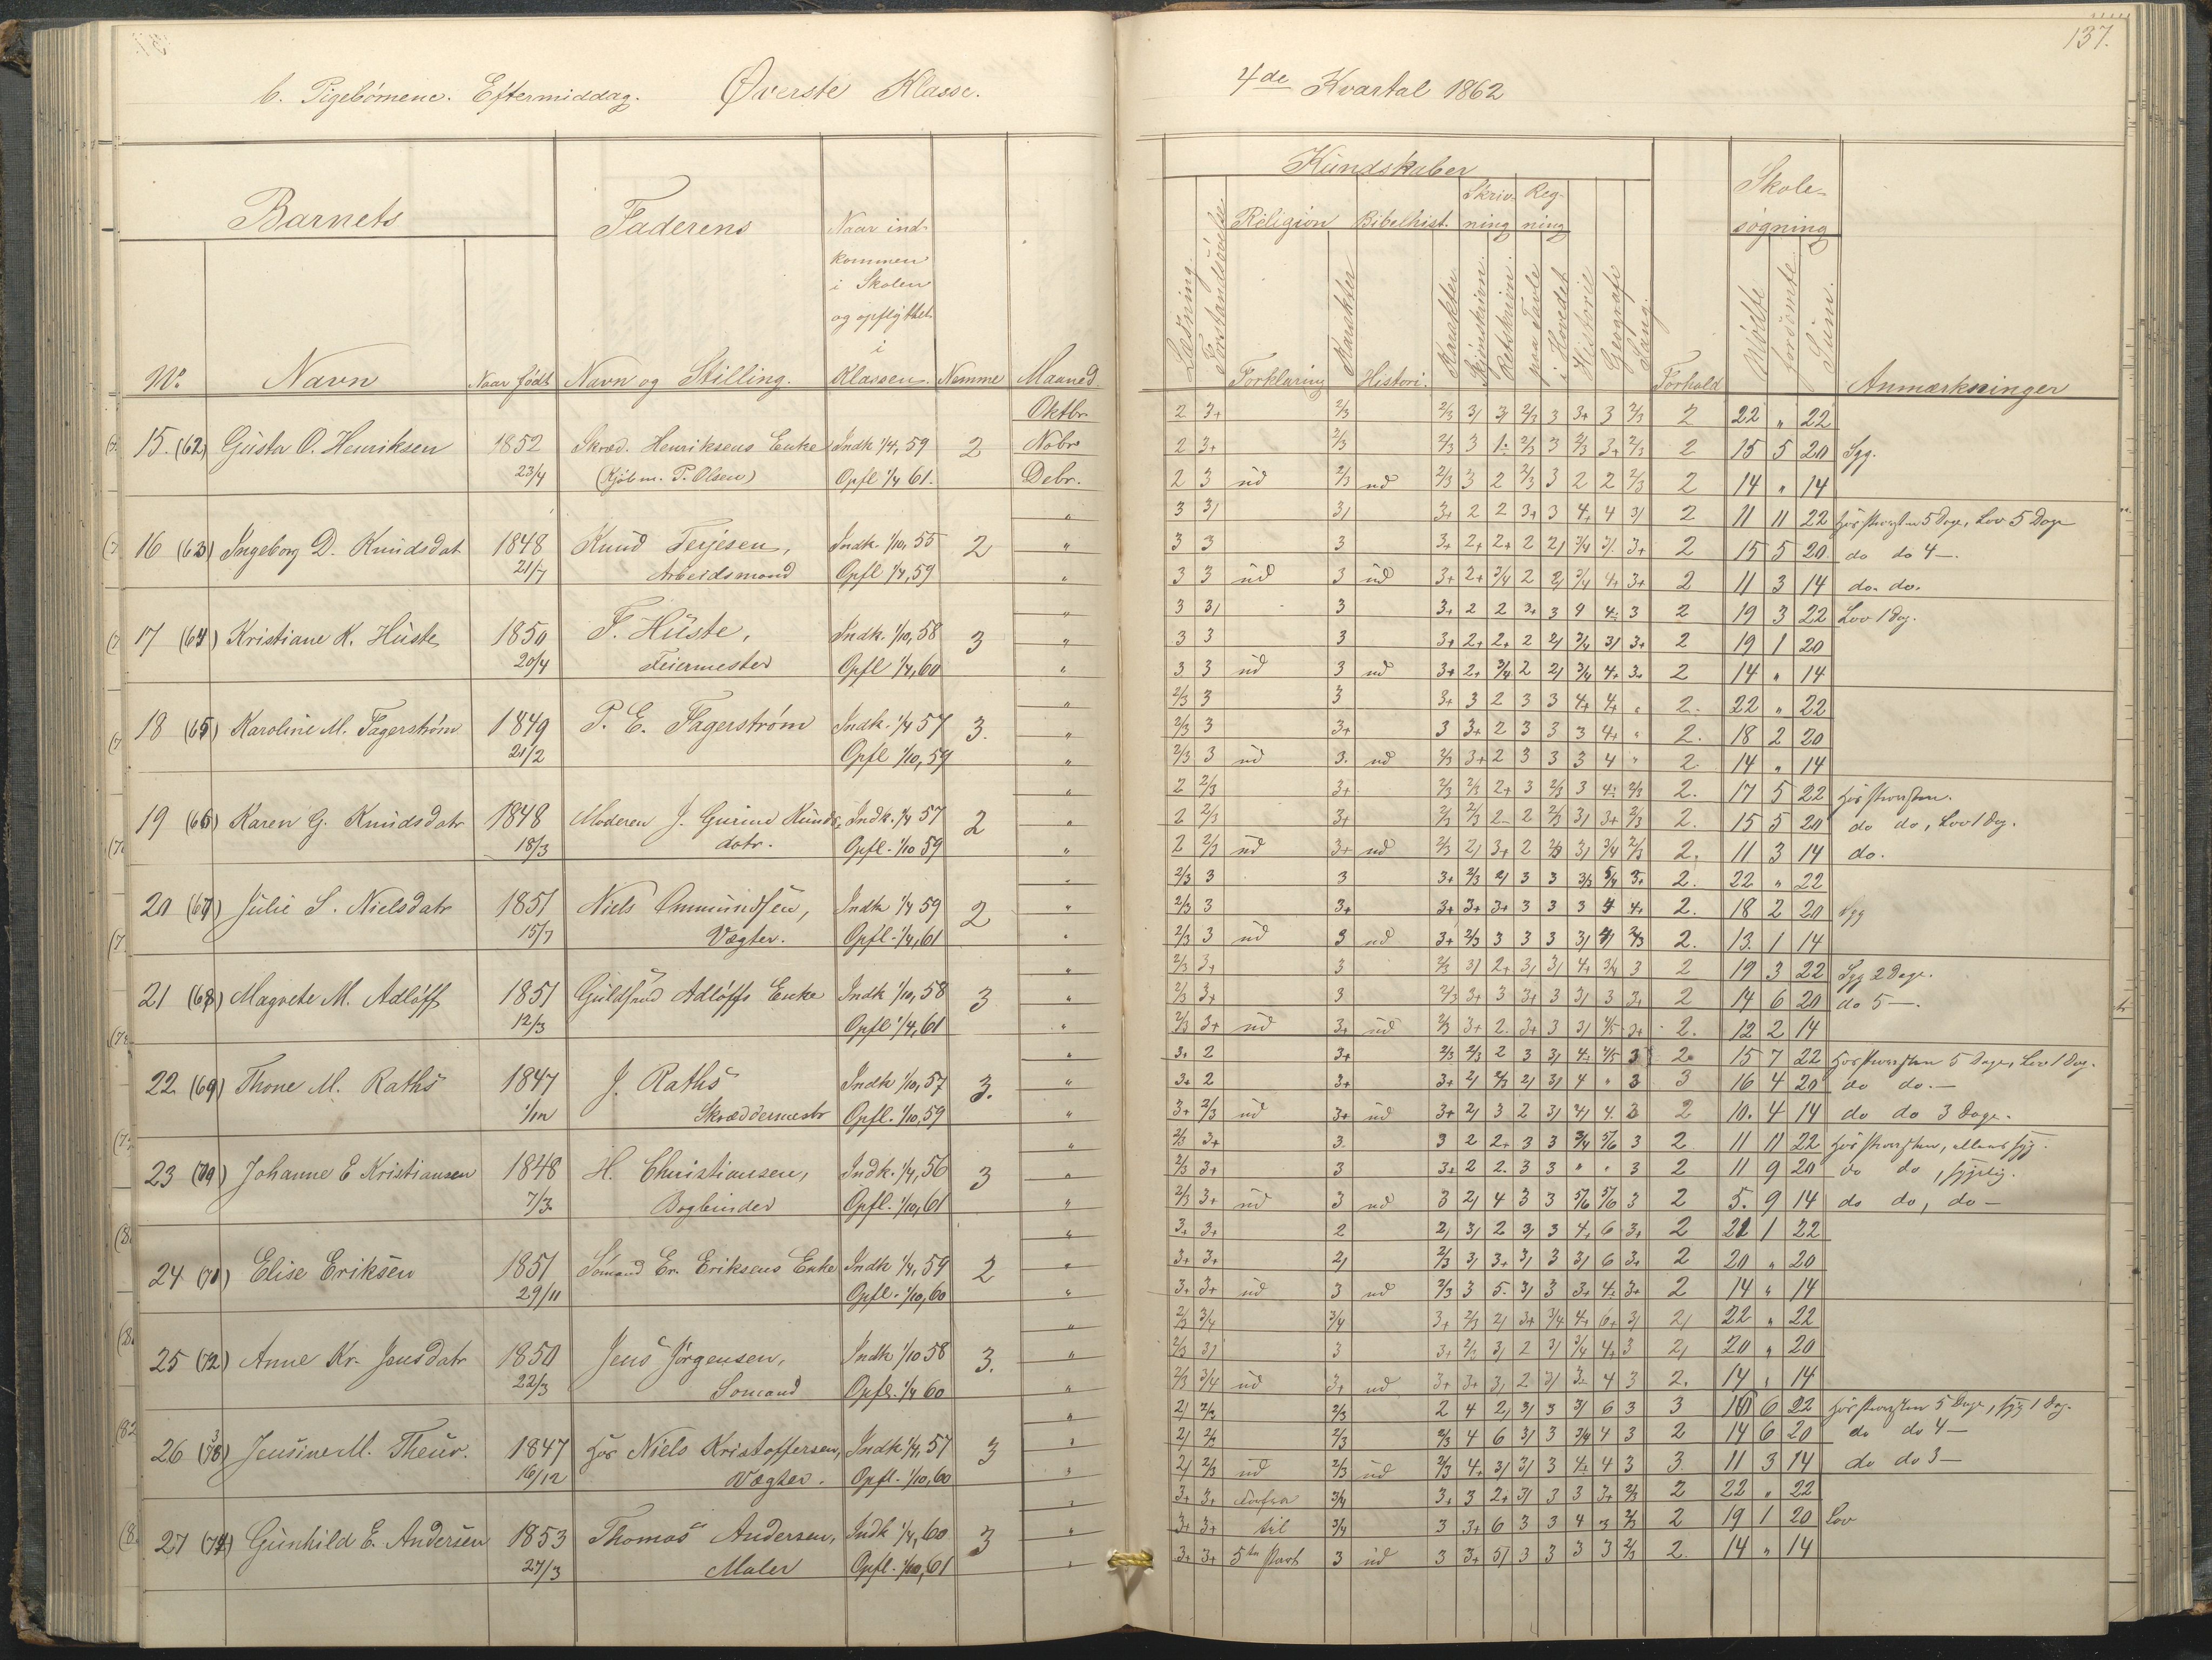 137.
b. Pigebørnene. Eftermiddag. Øverste Klasse.
4de Kvartal 1862
Barnets
Faderens
Naar ind-
kommen
i Skolen
og opflyttet
i
Klassen.
No. Navn Naar født Navn og Stilling. Nemme Maaned
Kundskaber
Læsning.
Forstandsøvelse
Religion Bibelhist. Skriv-
ning Reg-
ning
Forklaring Karakter Histori. Karakter Skjønskrivn. Retskrivn. paa Tavle i Hovedet Historie Geografi Sang.
Forhold
Skole-
søgning
Mødte forsømte Sum.
Anmærkninger
Oktbr. 2 3+ 2/3 2/3 3/ 3/ 2/3 3 3+ 3 2/3 2 22 " 22
15. (62) Gusta O. Henriksen 1852 Skræd. Henriksens Enke Indk 1/4, 59 2 Nobr. 2 3+ 2/3 2/3 3 2/3 3 2/3 3+ 2/3 2 15 5 20 Syg.
23/4 (Kjøbm. P. Olsen) Opfl 1/4 61. Debr. 2 3 ud 2/3 ud 2/3 3 2 2/3 3 2 2 2/3 2 14 " 14
" 3 3/ 3/ 3+ 2 2 3+ 3 4+ 4 3/ 2 11 11 22 5 Dage, Lov 5 Dage
16 (63) Ingeborg D. Knudsdat 1848 Knud Terjesen, Indk. 1/10, 55 2 " 3 3 3 3+ 2+ 2+ 2 2/ 3/4 3/ 3+ 2 15 5 20 do do 4 —.
21/7 Arbeidsmand Opfl 1/4, 59 " 3 3 ud 3 ud 3+ 2+ 3/4 2 2/ 3/4 4+ 3+ 2 11 3 14 do. do.
" 3 3/ 3 3+ 2 2 3+ 3 3 2 19 3 22 Lov 1 Dag.
17 (64) Kristiane K. Huste 1850 F. Huste, Indk. 1/10, 58 3 " 3 3 3 3+ 2+ 2+ 2 2/ 3/4 3/ 3+ 2 19 1 20
20/4 Feiermester Opfl 1/4, 60 " 3 3 ud 3 ud 3+ 2+ 3/4 2 2/ 3/4 4+ 3+ 2 14 " 14
" 2/3 3 3 3+ 3 2 3 3 4+ 4+ " 2. 22 " 22
18 (65) Karoline M. Fagerstrøm 1849 P. E. Fagerstrøm Indk. 1/4 57 3. " 2/3 3 3+ 3 3+ 2 3 3 3 4+ " 2. 18 2 20
21/2 Opfl 1/10, 59 " 2/3 3 ud 3. ud 2/3 3+ 2 3 3 3 4 " 2. 14 " 14
" 2 2/3 3+ 2/3 2/3 2+ 3 2/3 3 2/3 2. 17 5 22
19 (66) Karen G. Knudsdatr 1848 Moderen J. Gurine Knuds- Indk. 1/4 57 2 " 2 2/3 3+ 2/3 2/3 2 2/3 3/ 3+ 2/3 2. 15 5 20 do do, Lov 1 Dag.
18/3 datr. Opfl. 1/10 59 " 2 2/3 ud 3+ ud 2/3 2/ 3+ 2 2/3 3/ 3/4 2/3 2. 11 3 14 do.
" 2/3 3 3 3+ 2/3 2/ 3 3 2/3 3+ 2. 22 " 22
20 (67) Julie S. Nielsdatr 1851 Niels Ommundsen, Indk 1/4 59 2 " 2/3 3 3+ 3+ 3+ 3+ 3 3 3 4 4+ 2. 18 2 20 Syg
15/7 Vægter. Opfl. 1/4, 61 " 2/3 3 ud 3 ud 3+ 2/3 3 3 3 3/ 4/ 2/3 2. 13. 1 14
" 2/3 3+ 3 2/3 3/ 2+ 3/ 3/ 4+ 3/4 3 2 19 3 22 Syg 2 Dage.
21 (68) Magrete M. Adløff 1851 Guldsmed Adløffs Enke Indk 1/10, 58 3 " 2/3 3+ 3 2/3 3+ 3 3+ 3 3/ 3 3+ 2 14 6 20 do 5 —.
12/3 Opfl 1/4, 61 " 2/3 3+ ud 3+ ud 2/3 3+ 2. 3+ 3 3/ 4/5 3+ 2. 12 2 14
" 3+ 2 3+ 2/3 2/3 2 3 3/ 4/5 3 2 15 7 22 5 Dage, Lov 1 Dag.
22 (69) Thone M. Raths 1847 J. Raths Indk 1/10, 57 3. " 3+ 2 3+ 3+ 2/ 2/3 2/ 3/ 4 " 3 3 16 4 20 do do. —
Skræddermestr Opfl. 1/10, 59 " 3+ 2/3 ud 3+ ud 3+ 2/ 3 2 3/ 4. 3 2 10. 4 14 do do 3 Dage.
" 2/3 3+ 3. 3 2 2+ 3 3 3/4 5/6 3 2 11 11 22
23 (70) Johanne E Kristiansen 1848 H. Christiansen, Indk. 1/4, 56 3 " 2/3 3+ 3 3+ 2 2. 3 3 " " 3 2 11 9 20 do do
7/3 Bogbinder Opfl. 1/10, 61 " 2/3 3+ ud 3 ud 3 2/ 4 3 3 5/6 5/6 3 2 5. 9 14 do do, do —
" 3+ 3+ 2 2/ 3/ 2 3/ 3 4+ 6 3+ 2 21 1 22
24 (71) Elise Eriksen 1851 Sømand Er. Eriksens Enke Indk 1/4, 59 2 " 3+ 3+ 2/ 2/3 3/ 3+ 3/ 3 3/ 6 3+ 2 20 " 20
29/11 Opfl. 1/10, 60 " 3+ 3+ ud 3 ud 2/3 3 5. 3/ 3 3+ 4+ 3+ 2 14 " 14
" 2/3 3/4 3/4 3+ 2/3 2/ 3+ 3/4 4+ 6+ 3/ 2/ 22 " 22
25 (72) Anne Kr. Jensdatr 1850 Jens Jørgensen, Indk 1/10 58 3. " 2/3 3/ 3 3+ 2/3 3/ 2 3/ 3/4 4+ 3 2/ 20 " 20
22/3 Sømand Opfl. 1/4 60 " 2/3 3/4 ud 3+ ud 3+ 3+ 3/ 2 3/ 4 3 2. 14 " 14
" 2/ 2/3 2/3 2 4 2/ 3/ 3 3/ 6 3 3 16 6 22 5 Dage, syg 1 Dag.
26 (73) Jensine M. Theur. 1847 hos Niels Kristoffersen, Indk 1/4, 57 3 " 2/ 2/3 2/3 2/3 4 6 3/ 3 3/4 4 3 2 14 6 20 do do 4 —
16/12 Vægter. Opfl. 1/10, 60 " 2/ 2/3 ud 2/3 ud 2/3 4+ 3/ 3/ 3 4+ 4 3 3 11 3 14 do do 3 —
" 3+ 3+ 3/4 3+ 3 2+ 3/ 3 3 3+ 2/3 2 22 " 22
27 (74) Gunhild E. Andersen 1853 Thomas Andersen, Indk 1/4, 60 3 " 3+ 3+ til 3/4 3 3+ 6 3 3 4 3 2/3 2 19 1 20 Lov
27/3 Maler Opfl. 1/10, 61 " 3+ 3+ 5te Part 3 ud 3 3+ 5/ 3 3 3 3 2/3 2. 14 " 14